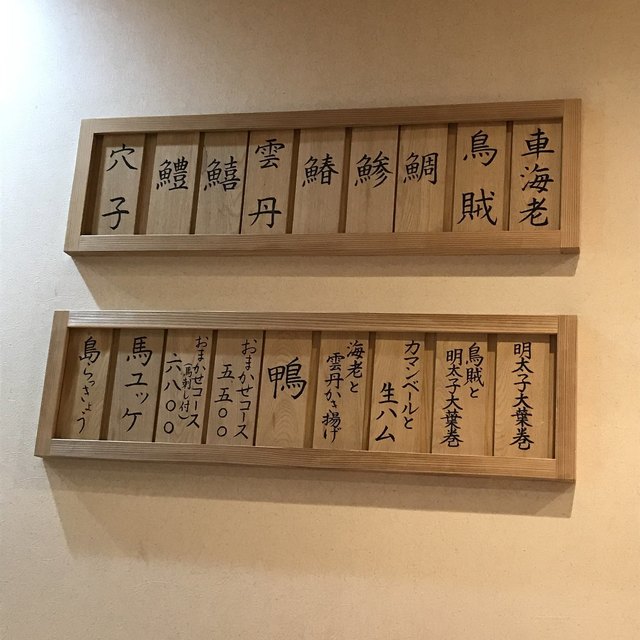 車海老
烏賊
鯛
鯵
鰆
雲丹
鱚
鱧
穴子
明太子大葉巻
烏賊と
明太子大葉巻
カマンベールと
生ハム
海老と
雲丹かき揚げ
鴨
おまかせコース
五五〇〇
おまかせコース
(馬刺し付)
六八〇〇
馬ユッケ
島らっきょう